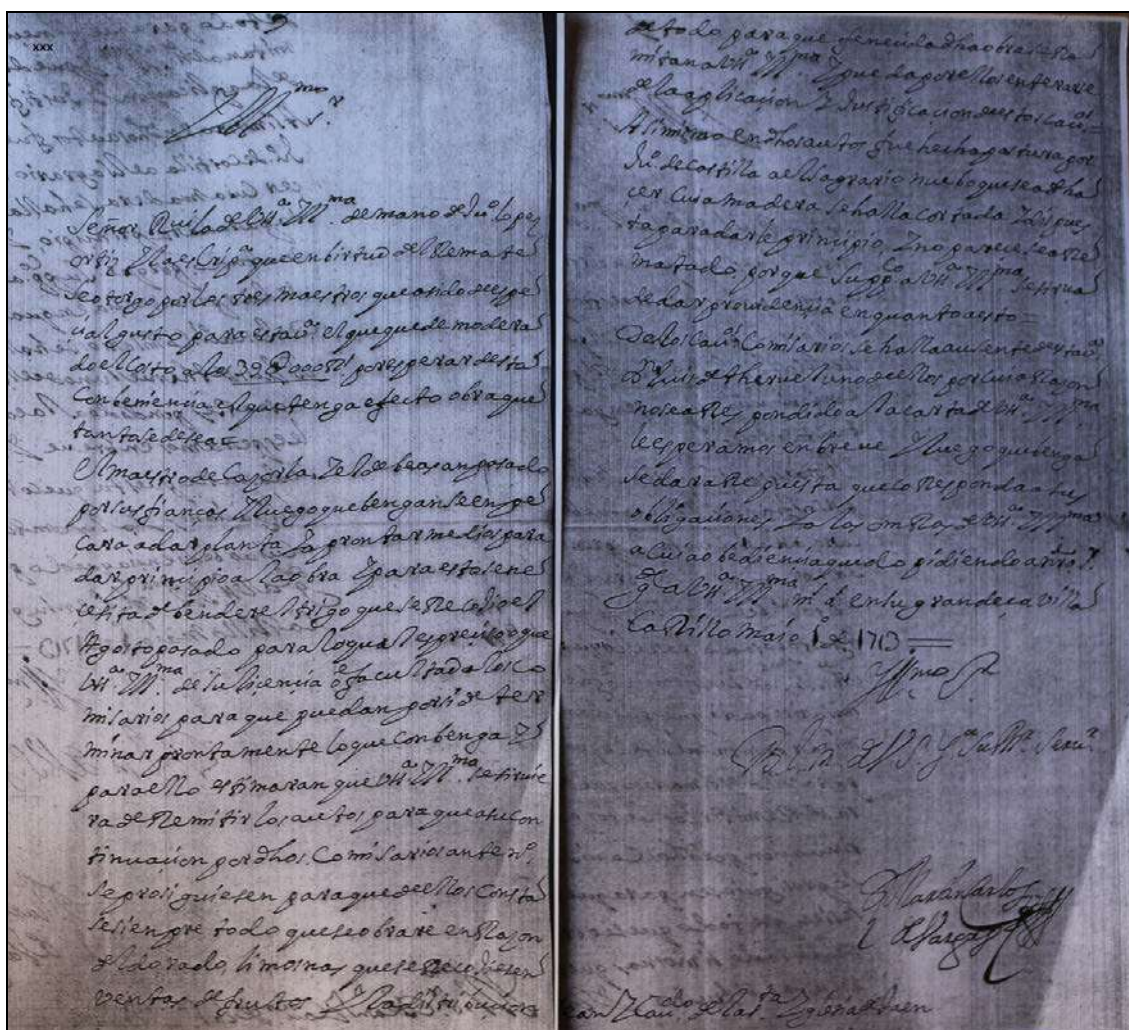 xxx
Yllmo Sr
Señor Reciui la de VSa Yllma de mano de Juo lopes
ortiz Y la escripa que en birtud del Remate
se otorgo por los tres maestros que a sido de espe
cial gusto para esta ciud el que quede modera
do el costo a los 39U000 Rs por esperar de esta
combeniencia el que tenga efecto obra que
tanto se desea =
El maestro de Casorla Y el de beas an pasado
por las fianças Y luego que bengan se enpe
cara a dar planta Y a prontar medios para
dar principio a la obra Y para esto se ne
cesita de bender el trigo que se Recojio el
Agosto pasado para lo qual es preciso que
VSa Yllma de su licencia o facultad a los co
misarios para que puedan por si deter
minar prontamente lo que conbenga Y
para ello estimaran que VSa Yllma se siruie
ra de Remitir los autos para que a su con
tinuacion por dhos Comisarios ante no
se prosiguiesen para que de ellos conste
siempre todo que se obrare en Razon
del dorado limosnas que se Recojiesen
ventas de frutos Y la distribucion
de todo para que fenecida dha obra se Re
mitan a VSa Yllma Y pueda por ellos enterarse
de la aplicacion Y Justificacion de estos cau
Asimismo en dhos autos fue hecha postura por
Juo de Costilla a el Sagrario nuebo que se a de ha
cer cuia madera se halla cortada Y dispues
ta para darle principio Y no parece se a Re
matado, porque Suppco a VSa Yllma se sirua
de dar prouidencia en quanto a esto =
De los Cauos Comisarios se halla ausente de esta ciud
Dn Luis de theruel uno de ellos por cuia Razon
no se a Respondido a la carta de VSa Yllma
le esperamos en breue Y luego que benga
se dara Respuesta que corresponda a sus
obligaciones Y a las onRas de VSa Yllma
a cuia obediencia quedo pidiendo a nro Sr
ge a VSa Yllma ms as en su grandeça Villa
Carrillo Maio 1o de 1713 =
Yllmo Sr
B l m de VS Yma su Mr Seruor
Dn Carlos
de Vargas
Dean Y Cauo de la Sta Yglesia de Jaen